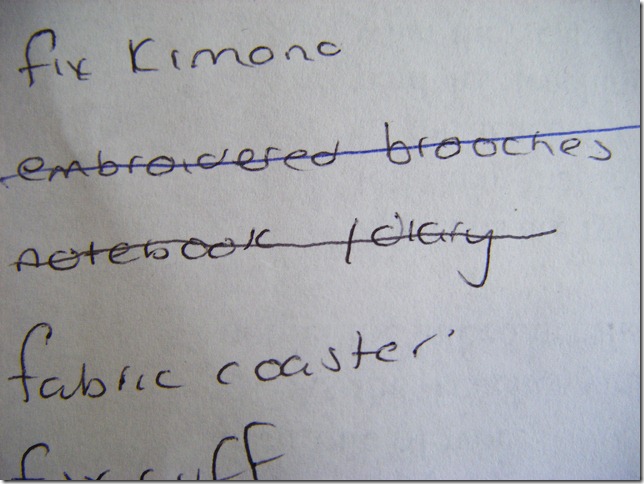 fix Kimono
embroidered brooches
notebook / diary
fabric coaster
fix cuff